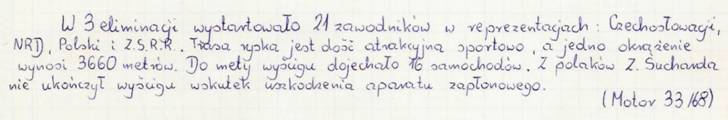 W 3 eliminacji wystartowało 21 zawodników w reprezentacjach: Czechosłowacji,
NRD, Polski i Z.S.R.R. Trasa ryska jest dość atrakcyjna sportowo, a jedno okrążenie
wynosi 3660 metrów. Do mety wyścigu dojechało 16 samochodów. Z polaków Z. Suchanda
nie ukończył wyścigu wskutek uszkodzenia aparatu zapłonowego.
(Motor 33/68)